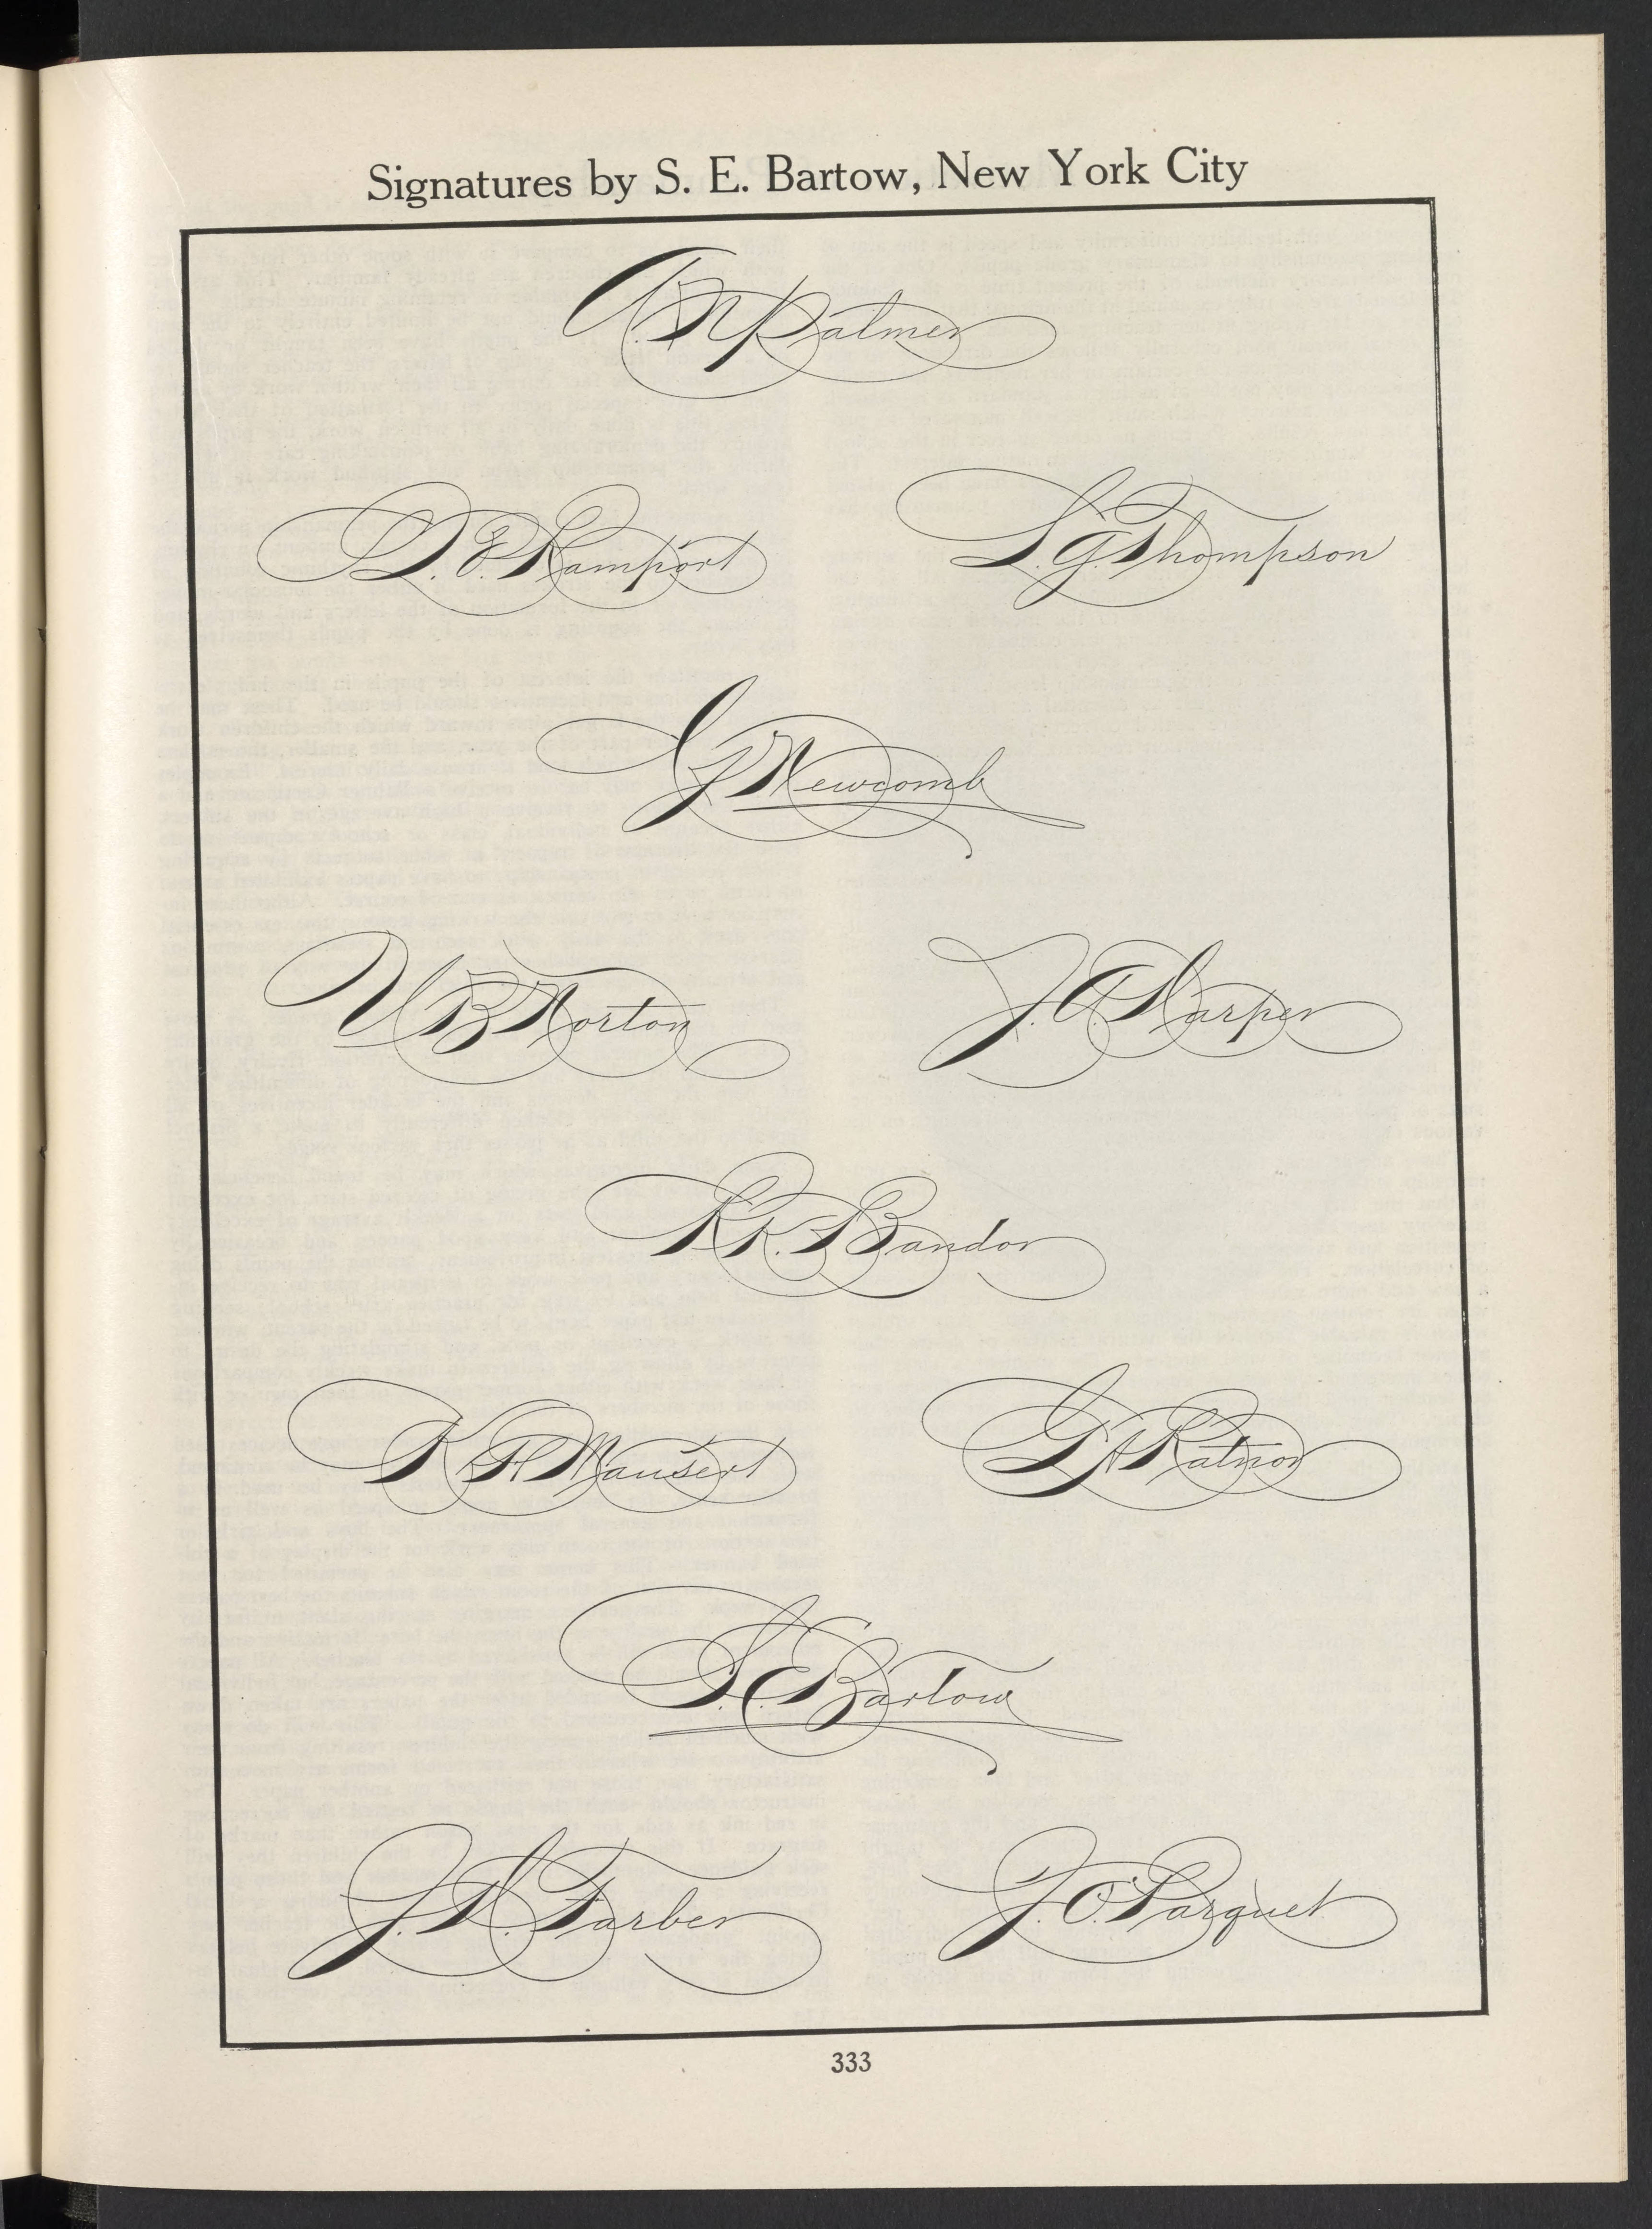 Signatures by S. E. Bartow, New York City
A. N. Palmer
D. E. Ramport
S. G. Thompson
G. F. Newcomb
W. B. Norton
J. A. Harper
R. K. Bandor
K. H. Mausert
G. A. Ratnor
S. E. Bartow
J. H. Farber
J. O. Parquet
333